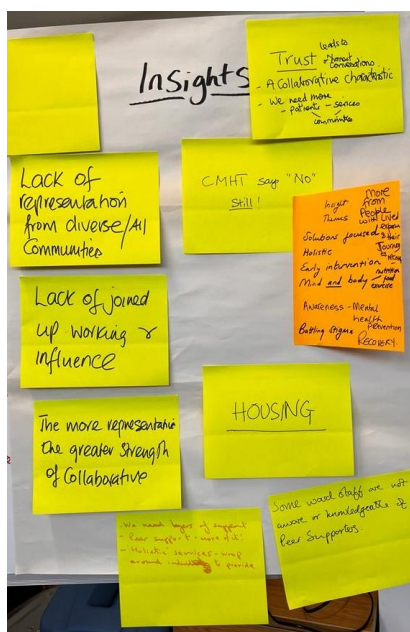 Insights
Trust leads to
honest
conversations
- A Collaborative characteristic
- We need more
- patients - services
communities
Lack of
representation
from diverse/All
Communities
CMHT say "No"
Still!
more
Insight from
Themes People
with Lived
Solutions focused
Holistic Journey
Early intervention
nutrition
Mind and body - food
exercise
Awareness - Mental
health
prevention
Battling stigma
RECOVERY.
Lack of joined
up working &
Influence
HOUSING
The more representative
the greater strength
of Collaborative
- We need layers of support
- Peer support - more of it!
- Holistic services - wrap
around to provide
Some ward staff are not
aware or knowledgeable of
Peer Supporters